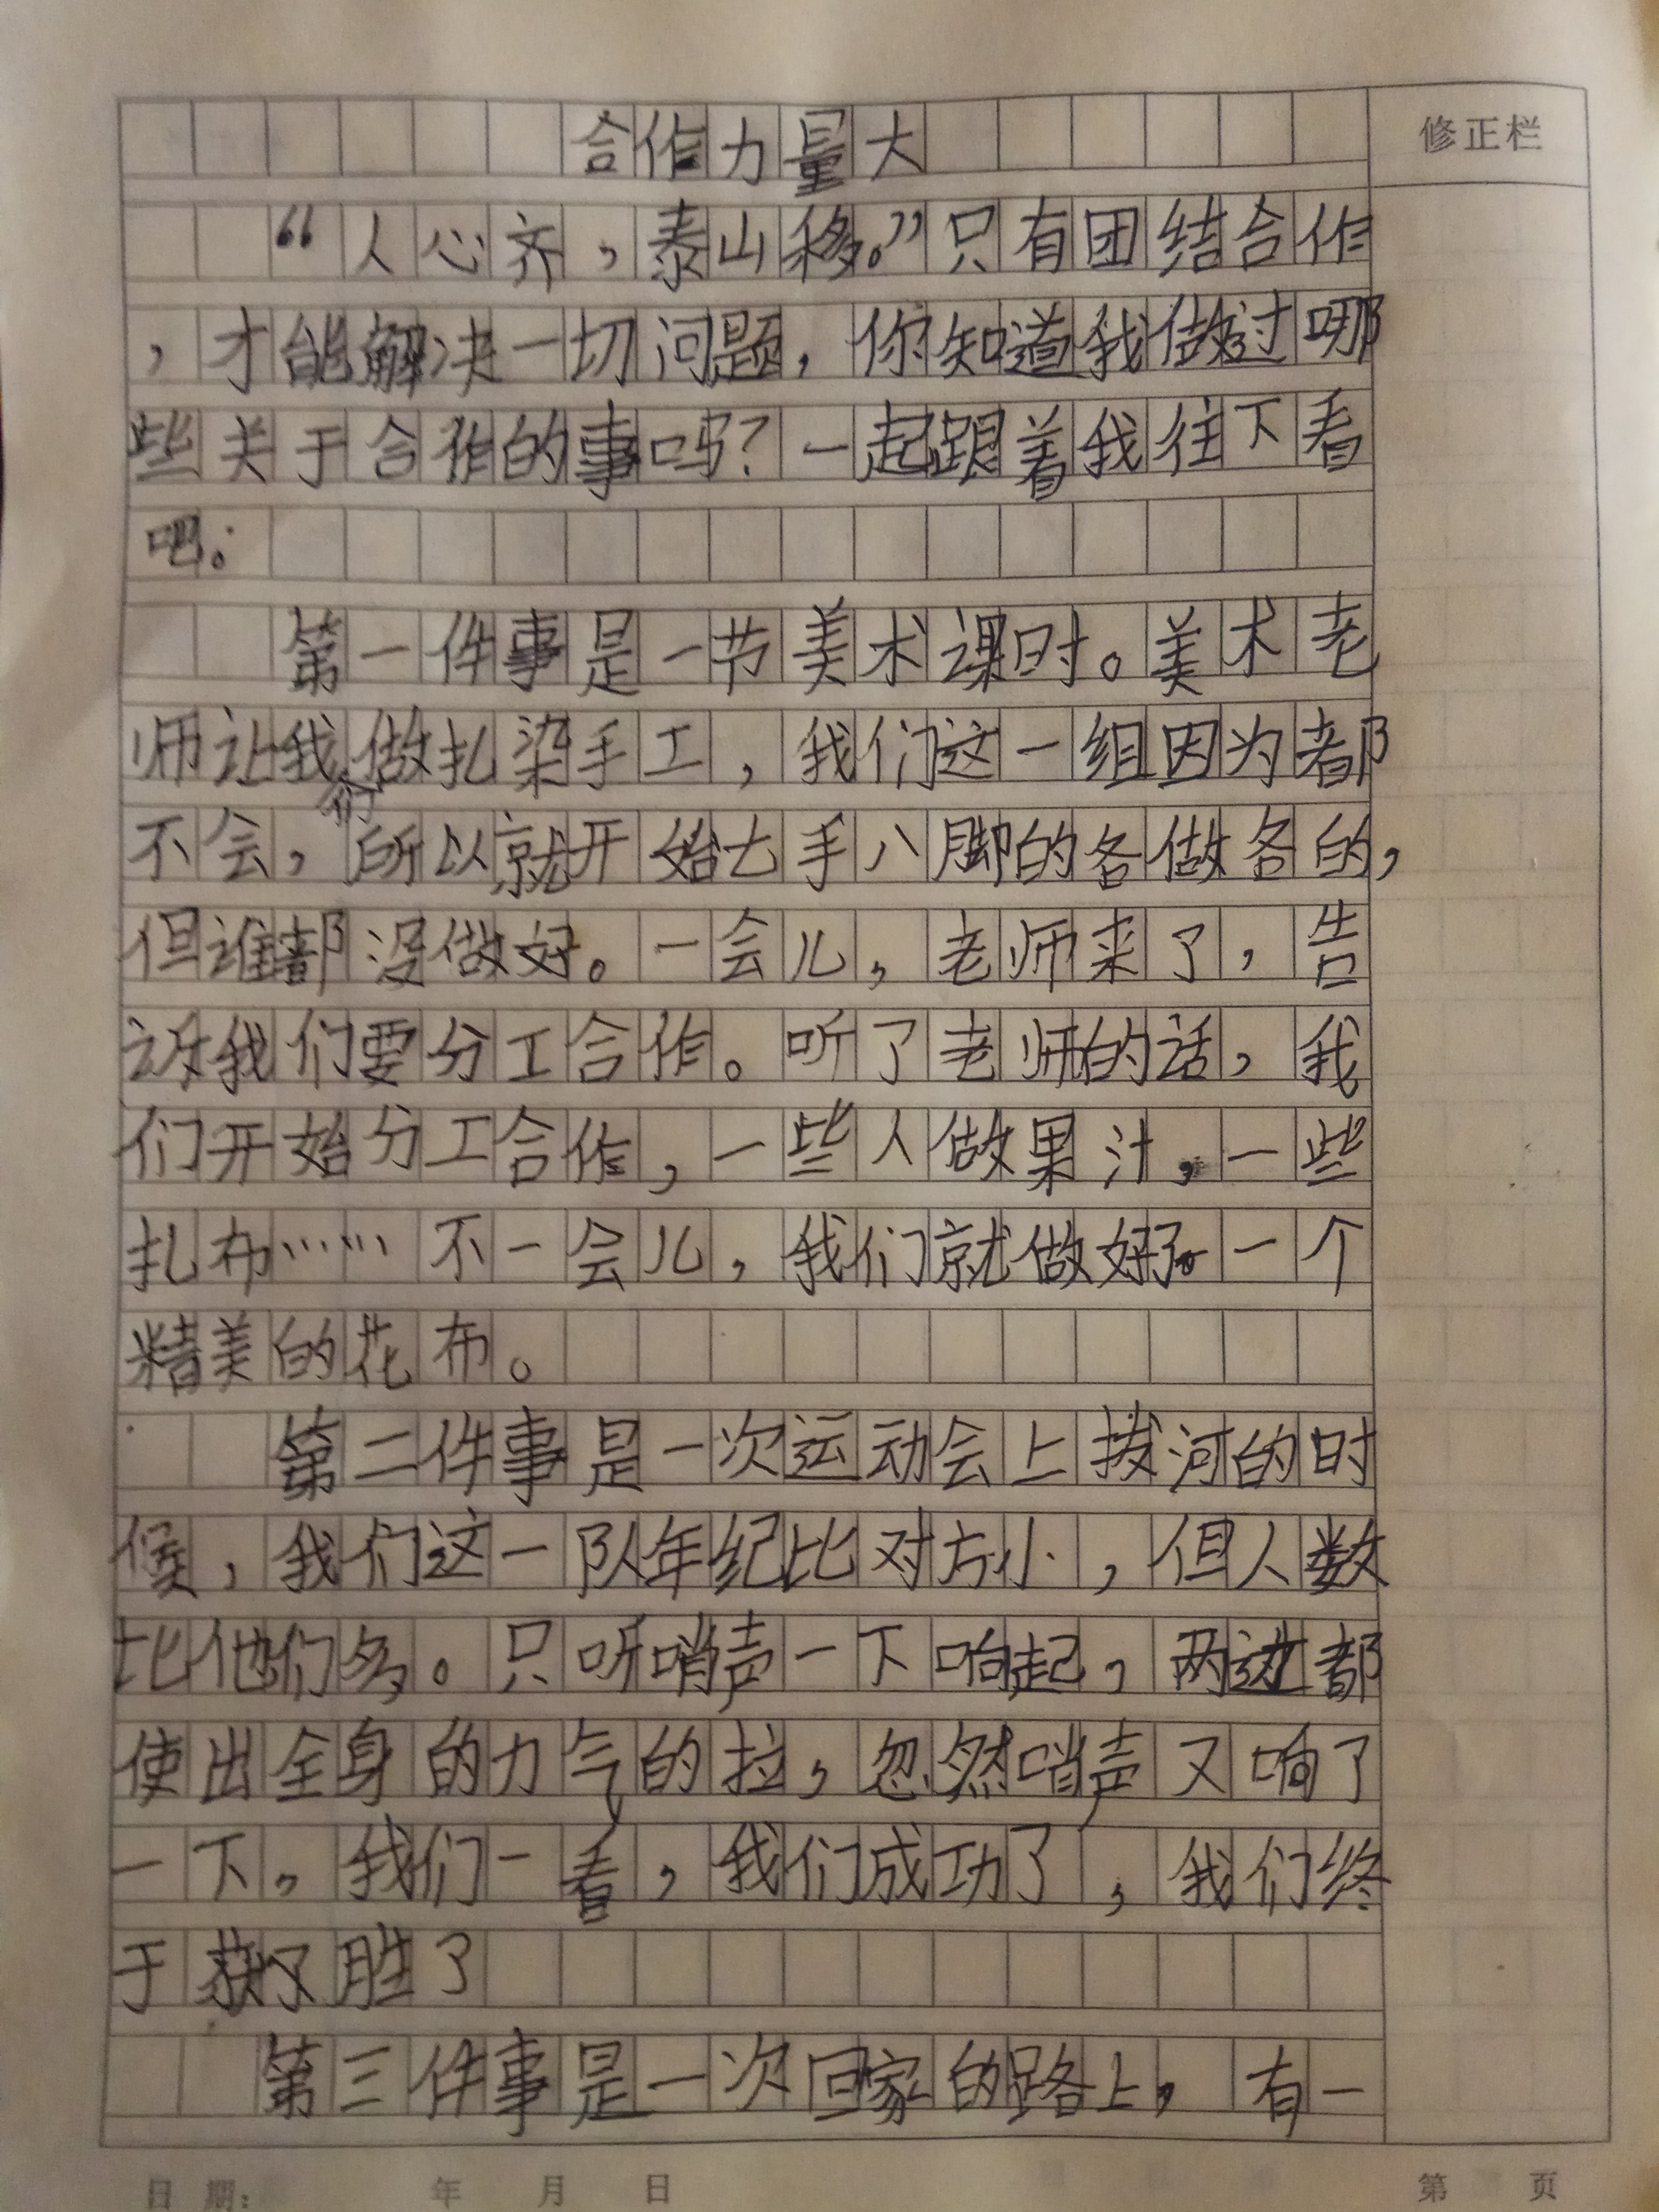 合作力量大
修正栏
“人心齐，泰山移。”只有团结合作
，才能解决一切问题，你知道我做过哪
些关于合作的事吗？一起跟着我往下看
吧。
第一件事是一节美术课时。美术老
师让我们做扎染手工，我们这一组因为都
不会，所以就开始七手八脚的各做各的，
但谁都没做好。一会儿，老师来了，告
诉我们要分工合作。听了老师的话，我
们开始分工合作，一些人做果汁，一些
扎布……不一会儿，我们就做好了一个
精美的花布。
第二件事是一次运动会上拔河的时
候，我们这一队年纪比对方小，但人数
比他们多。只听哨声一下响起，两边都
使出全身的力气的拉，忽然哨声又响了
一下，我们一看，我们成功了，我们终
于获胜了
第三件事是一次回家的路上，有一
日期： 年 月 日
第 页